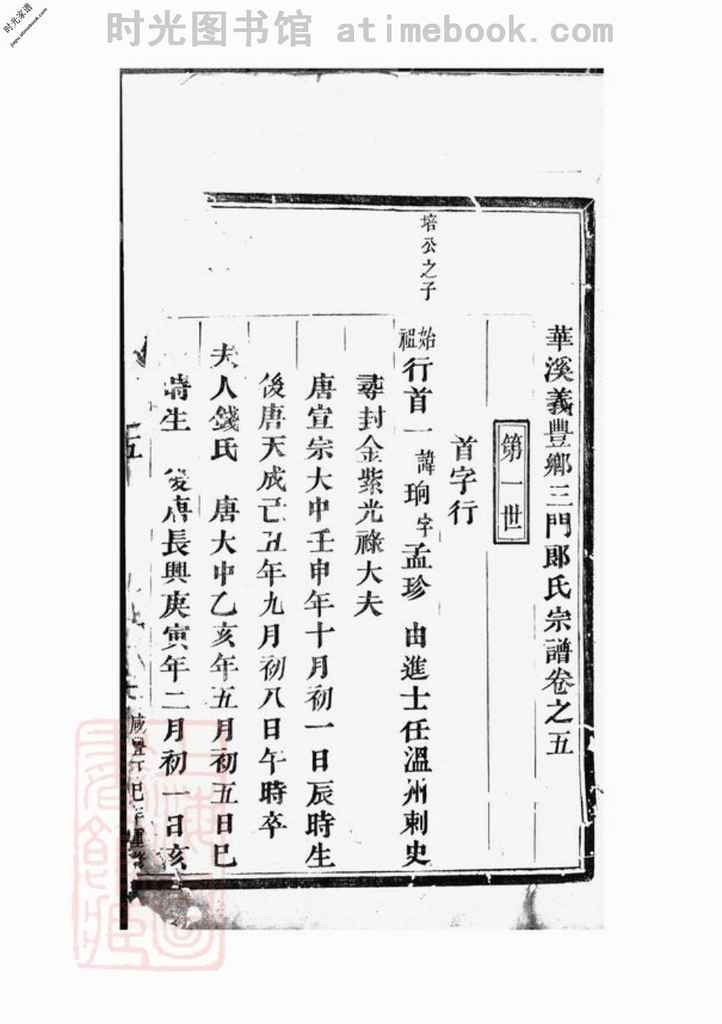 时光图书馆 atimebook.com
时光家谱
jiapu.atimebook.com
華溪義豐鄉三門郎氏宗譜卷之五
第一世
首字行
培公之子
始祖行首一諱珦字孟珍 由進士任溫州刺史
尋封金紫光祿大夫
唐宣宗大中壬申年十月初一日辰時生
後唐天成己丑年九月初八日午時卒
夫人錢氏 唐大中乙亥年五月初五日巳
時生 後唐長興庚寅年二月初一日亥
五
咸豐丁巳年重修